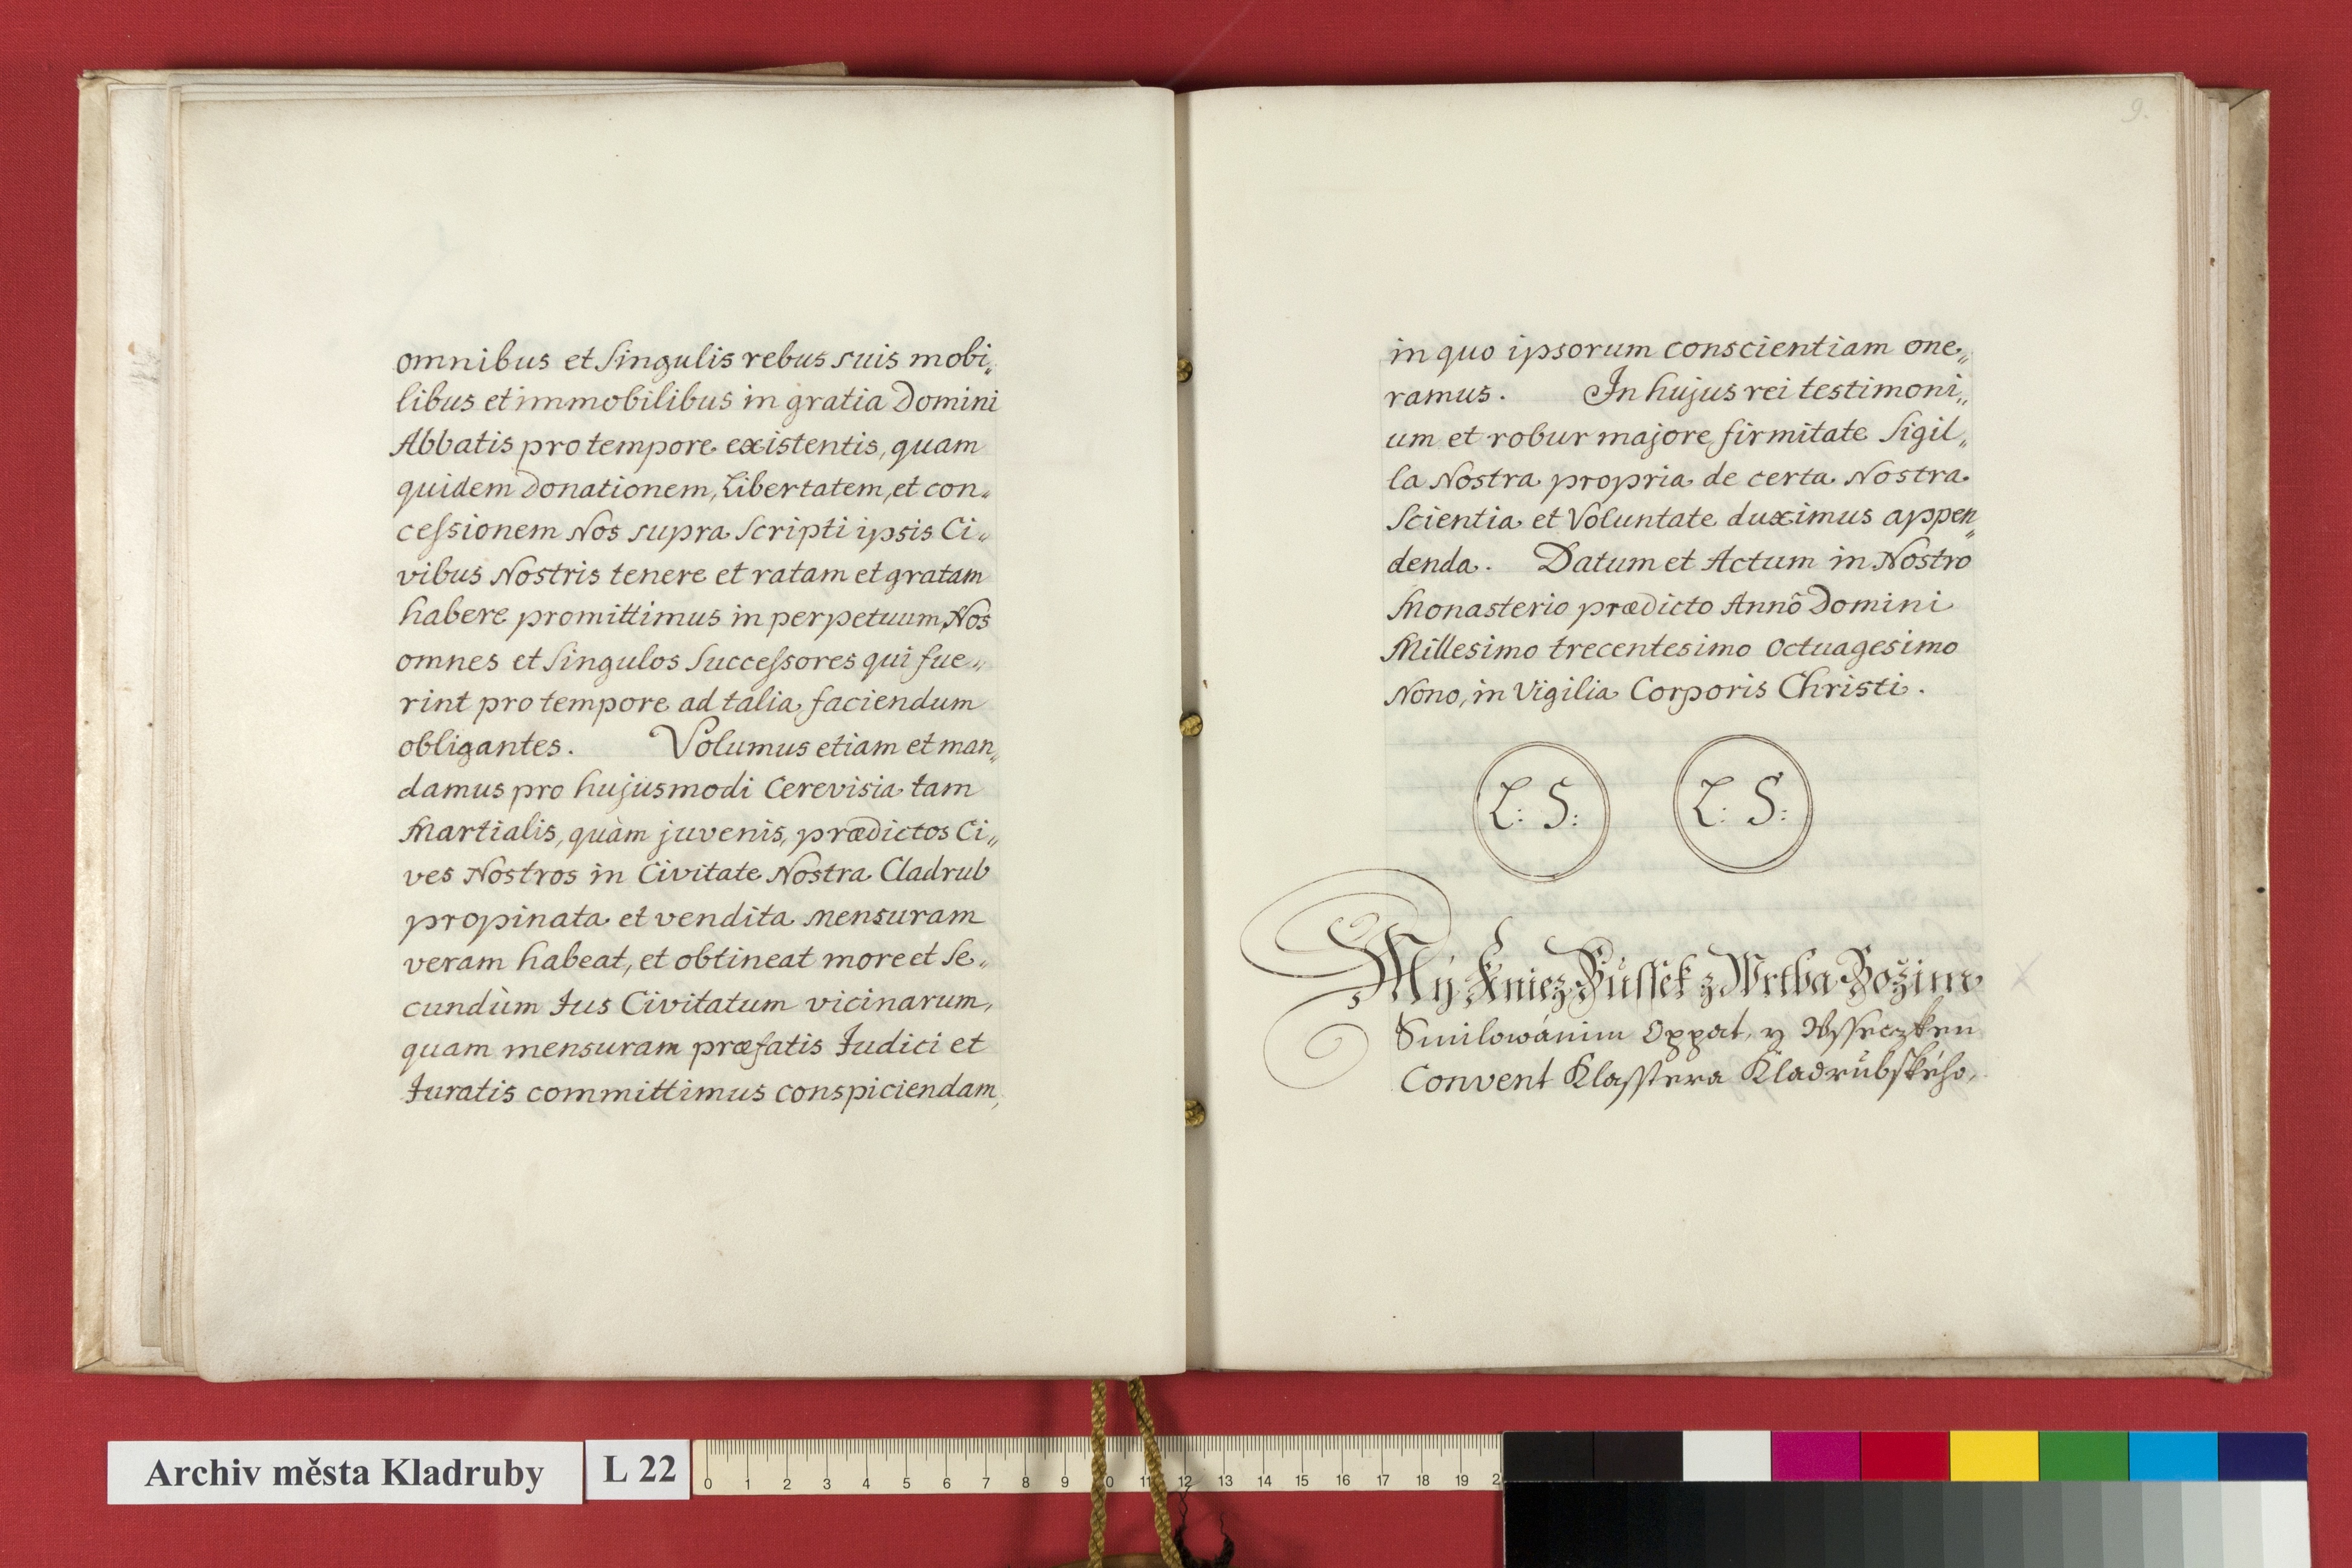 omnibus et Singulis rebus suis mobi„
libus et immobilibus in gratia Domini
Abbatis pro tempore existentis, quam
quidem Donationem, Libertatem, et con„
cessionem Nos supra Scripti ipsis Ci„
vibus Nostris tenere et ratam et gratam
habere promittimus in perpetuum, Nos
omnes et Singulos Successores qui fue„
rint pro tempore ad talia faciendum
obligantes. Volumus etiam et man„
damus pro hujusmodi Cerevisia tam
Martialis, quàm juvenis, prædictos Ci„
ves Nostros in Civitate Nostra Cladrub
propinata et vendita mensuram
veram habeat, et obtineat more et Se„
cundùm Jus Civitatum vicinarum,
quam mensuram præfatis Judici et
Juratis committimus conspiciendam,
9.
in quo ipsorum conscientiam one„
ramus. In hujus rei testimoni„
um et robur majore firmitate Sigil„
la Nostra propria de certa Nostra
Scientia et Voluntate duximus appen„
denda. Datum et Actum in Nostro
Monasterio prædicto Annô Domini
Millesimo trecentesimo Octuagesimo
Nono, in Vigilia Corporis Christi.
L: S: L: S:
Mÿ Kniez Bůssek z Wrtba Božim
Smilowánim Oppat, y Wsseczken
Convent Klasstera Kladrůbského,
Archiv města Kladruby L 22
0 1 2 3 4 5 6 7 8 9 10 11 12 13 14 15 16 17 18 19 2